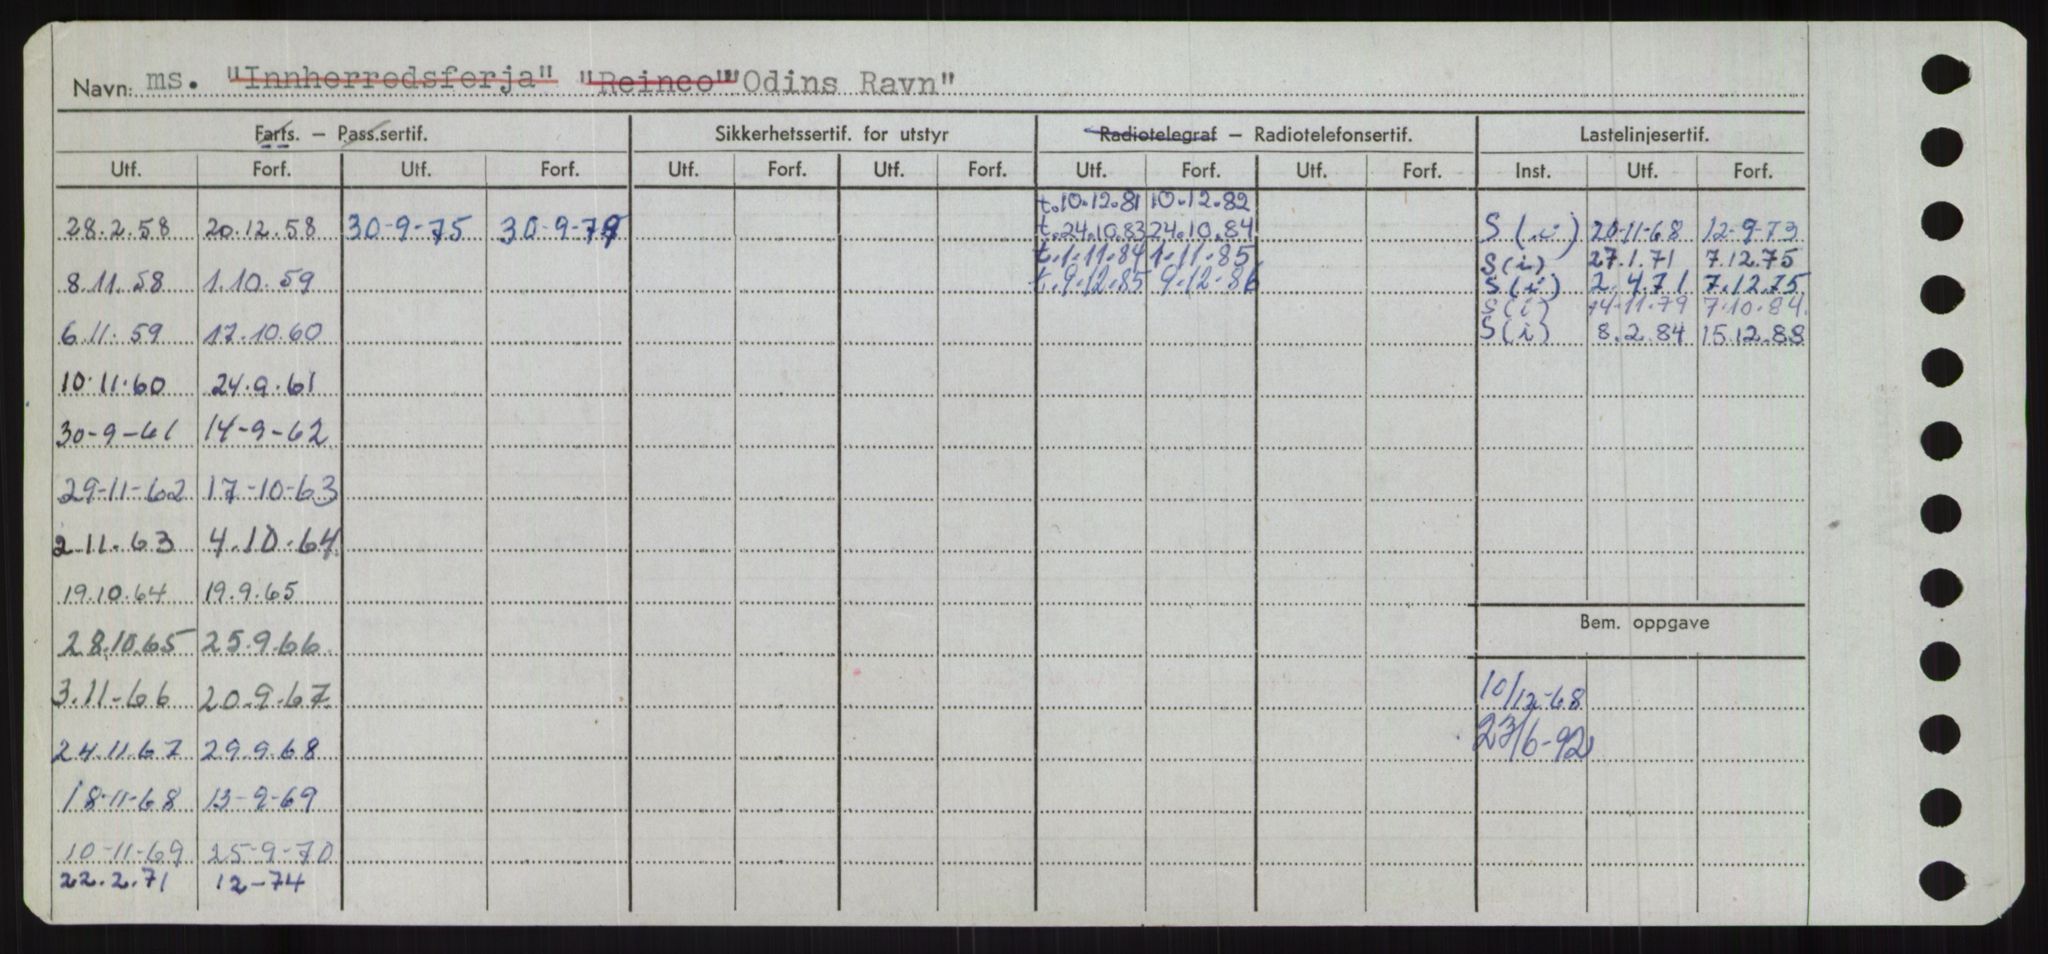 Navn: ms. "Innherredsferja" "Reineo" "Odins Ravn"
Farts. – Pass.sertif. Sikkerhetssertif. for utstyr Radiotelegraf – Radiotelefonsertif. Lastelinjesertif.
Utf. Forf. Utf. Forf. Utf. Forf. Utf. Forf. Utf. Forf. Utf. Forf. Inst. Utf. Forf.
t.10.12.81 10.12.82
28.2.58 20.12.58 30-9-75 30-9-79 t.24.10.83 24.10.84 S(i) 20-11-68 12-9-73
t.1.11.84 1.11.85 S(i) 27.1.71 7.12.75
8.11.58 1.10.59 t.9.12.85 9.12.86 S(i) 2.4.71 7.12.75
S(i) 14-11.79 7.10.84.
6.11.59 17.10.60 S(i) 8.2.84 15.12.88
10.11.60 24.9.61
30-9-61 14-9-62
29-11-62 17-10-63
2.11.63 4.10.64
19.10.64 19.9.65
Bem. oppgave
28.10.65 25.9.66
3.11-66 20.9.67 10/12-68
24.11.67 29.9.68 23/6-92
18-11-68 13-9-69
10-11-69 25-9-70
22.2.71 12-74